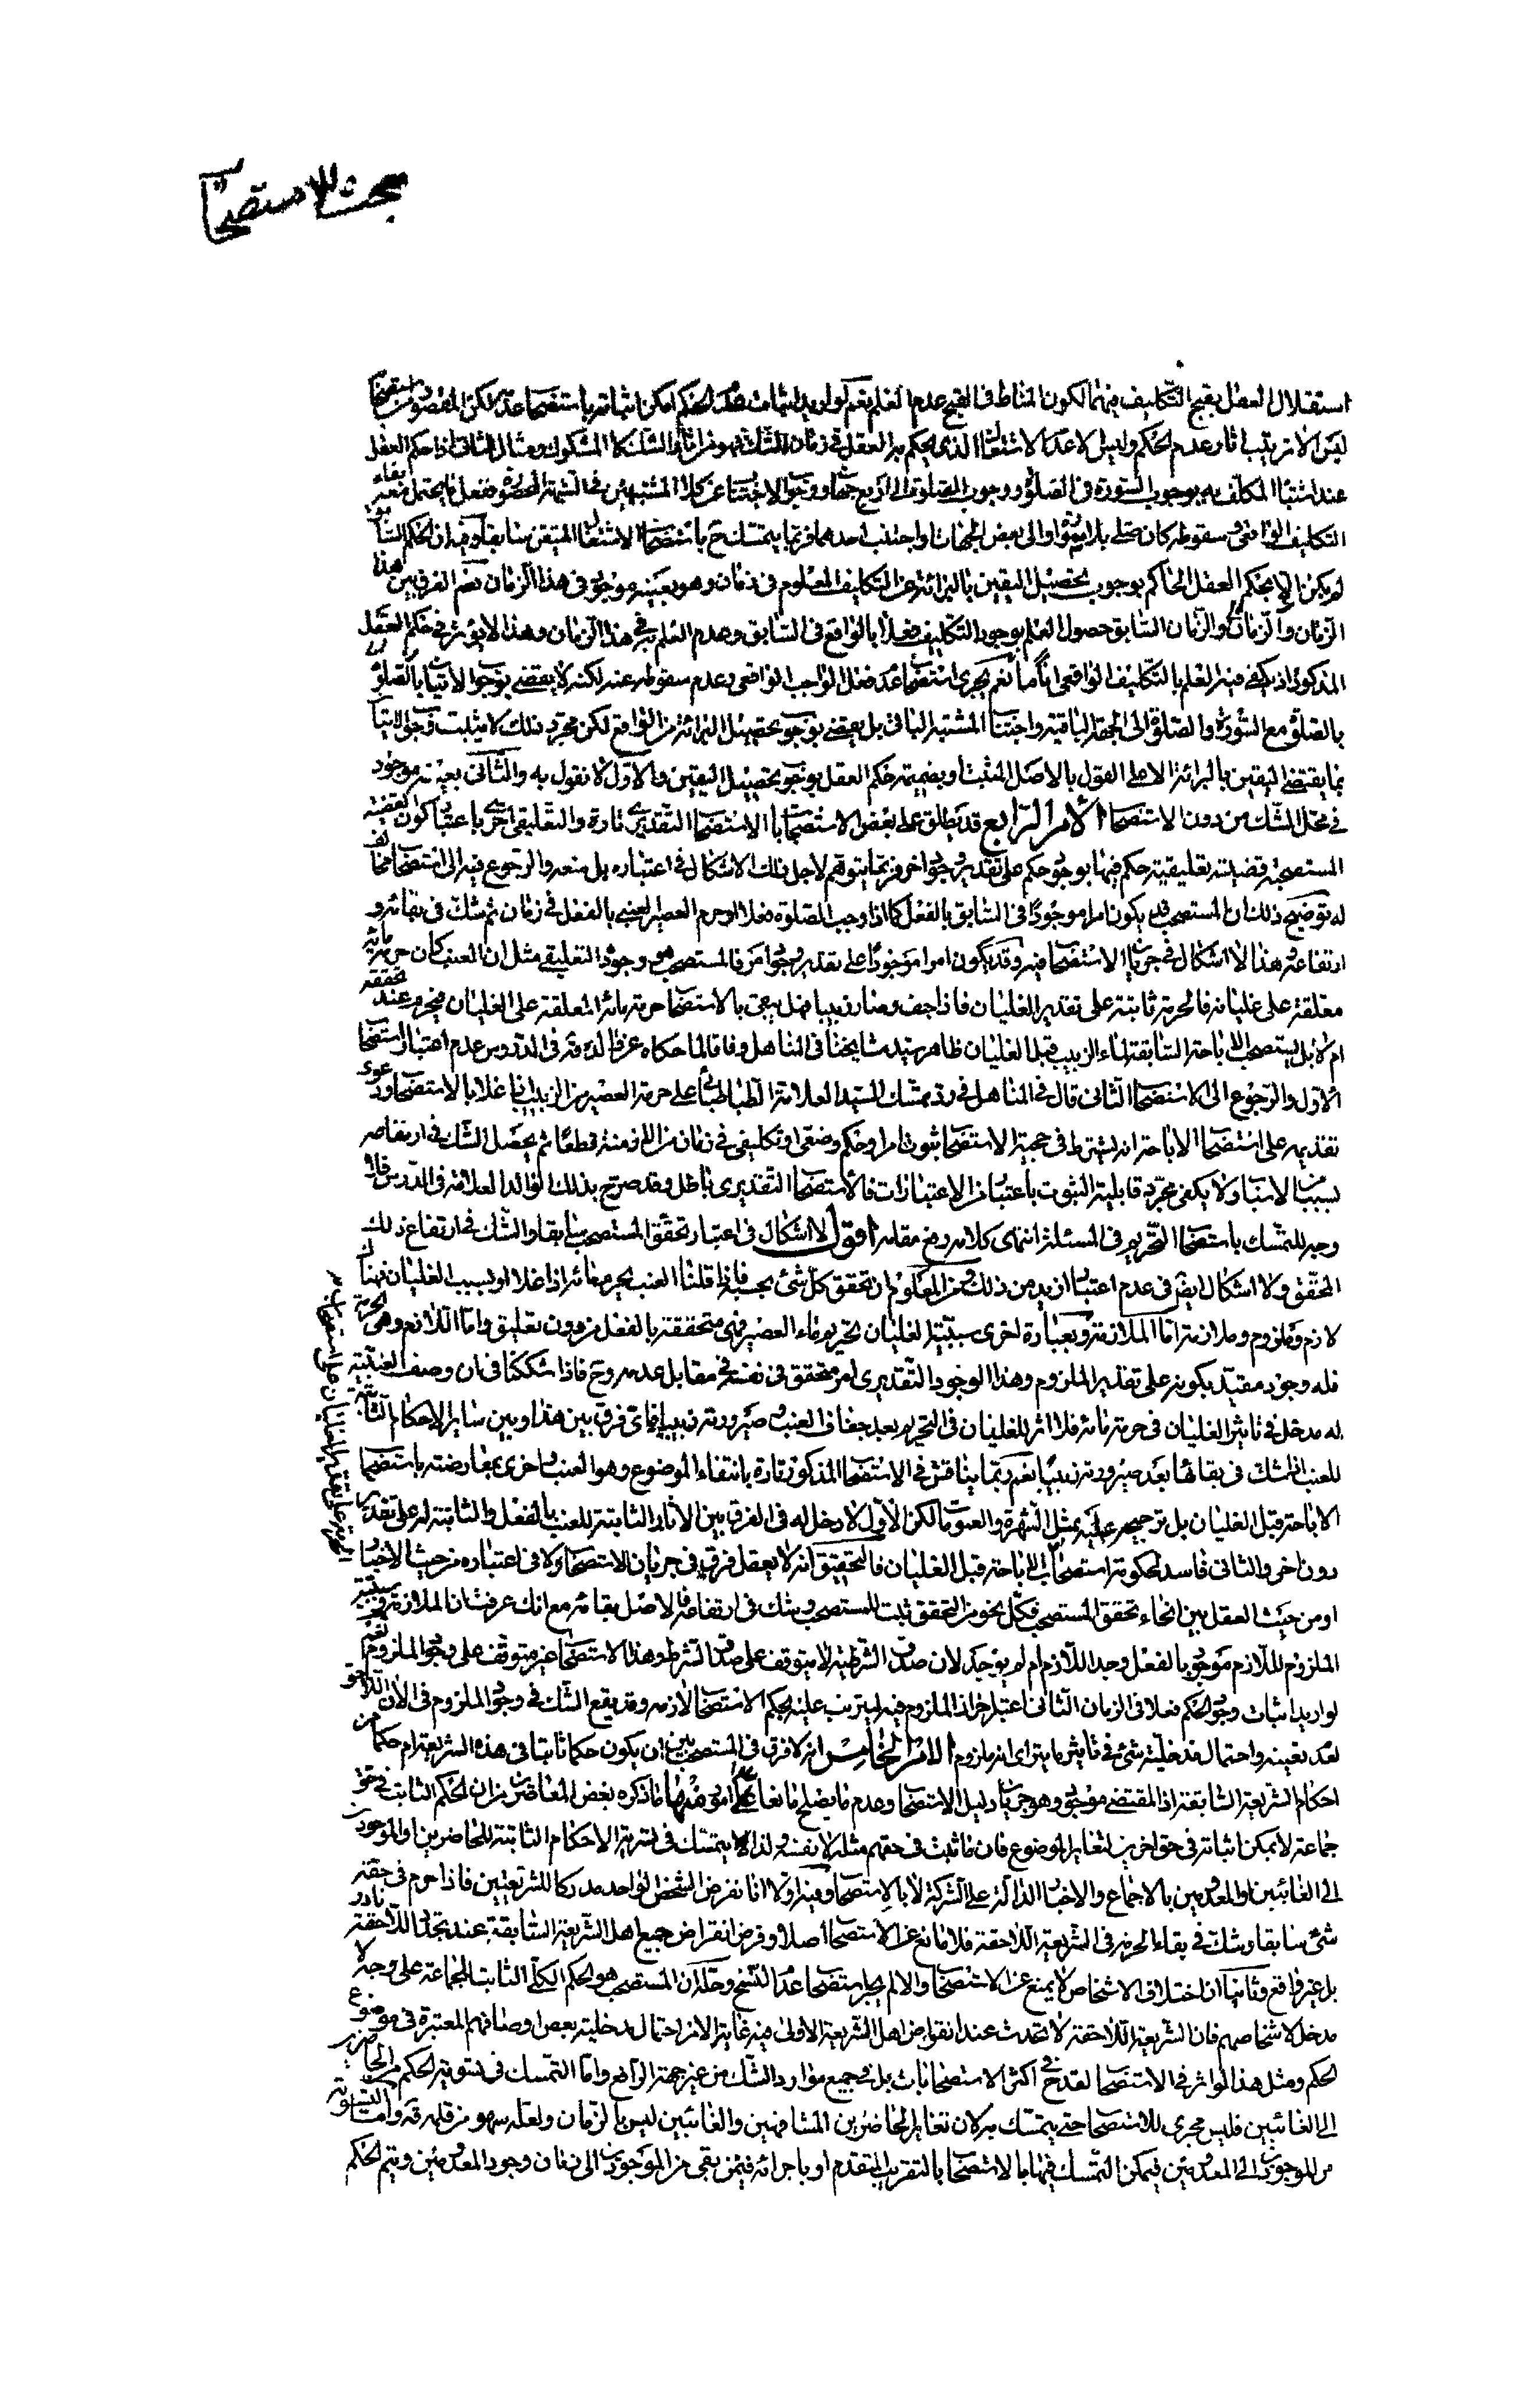 مبحث الاستصحاب
استقلال العقل بقبح التكليف فيهما لكون المناط فى القبح عدم العلم نعم لو اريد اثبات عدم الحكم امكن اثباته باستصحاب عدمه لكن المقصود من استصحابه
ليس الا ترتيب اثار عدم الحكم وليس الا عدم الاشتغال الذى يحكم به العقل فى زمان الشك فهو من اثار الشك لا المشكوك ومثال الثانى اذا حكم العقل
عند اشتباه المكلف به بوجوب السورة فى الصلوة ووجوب الصلوة الى اربع جهات ووجوب الاجتناب عن كلا المشتبهين فى الشبهة المحصورة ففعل ما يحتمل معه بقاء
التكليف الواقعى وسقوطه كان صلى بلا سورة او الى بعض الجهات او اجتنب احدهما فربما يتمسك ح باستصحاب الاشتغال المتيقن سابقا وفيه ان الحكم السابق
لم يكن الا بحكم العقل الحاكم بوجوب تحصيل اليقين بالبرائة عن التكليف المعلوم فى زمان وهو بعينه موجود فى هذا الزمان نعم الفرق بين هذا
الزمان والزمان السابق حصول العلم بوجود التكليف فعلا بالواقع فى السابق وعدم العلم به فى هذا الزمان وهذا لا يؤثر فى حكم العقل
المذكور اذ يكفى فيه العلم بالتكليف الواقعى انا ما نعم يجرى استصحاب عدم فعل الواجب الواقعى وعدم سقوطه عنه لكنه لا يقضى بوجوب الاتيان بالصلوة
بالصلوة مع السورة والصلوة الى الجهة الباقية واجتناب المشتبه الباقى بل يقضى بوجوب تحصيل البرائة من الواقع لكن مجرد ذلك لا يثبت وجوب الاتيان
بما يقتضى اليقين بالبرائة الا على القول بالاصل المثبت او بضميمة حكم العقل بوجوب تحصيل اليقين والاول لا نقول به والثانى بعينه موجود
فى محل الشك من دون الاستصحاب الامر الرابع قد يطلق على بعض الاستصحابات الاستصحاب التقديرى تارة والتعليقى اخرى باعتبار كون القضية
المستصحبة قضية تعليقية حكم فيها بوجود حكم على تقدير وجود اخر فربما يتوهم لاجل ذلك الاشكال فى اعتباره بل منعه والرجوع فيه الى استصحاب مخالف
له توضيح ذلك ان المستصحب قد يكون امرا موجودا فى السابق بالفعل كما اذا وجب الصلوة فعلا او حرم العصير العنبى بالفعل فى زمان ثم شك فى بقائه و
ارتفاعه وهذا لا اشكال فى جريان الاستصحاب فيه وقد يكون امرا موجودا على تقدير وجود امر فالمستصحب هو وجوده التعليقى مثل ان العنب كان حرمة مائه
معلقة على غليانه فالحرمة ثابتة على تقدير الغليان فاذا جف وصار زبيبا فهل يبقى بالاستصحاب حرمة مائه المعلقة على الغليان فيحرم عند تحققه
ام لا بل يستصحب الاباحة السابقة لماء الزبيب قبل الغليان ظاهر سيد مشايخنا فى المناهل وفاقا لما حكاه عن والده قده فى الدرس عدم اعتبار الاستصحاب
الاول والرجوع الى الاستصحاب الثانى قال فى المناهل فى رد تمسك السيد العلامة الطباطبائى على حرمة العصير من الزبيب اذا غلا بالاستصحاب ودعوى
تقديمه على استصحاب الاباحة انه يشترط فى حجية الاستصحاب ثبوت امر او حكم وضعى او تكليفى فى زمان من الازمنة قطعا ثم يحصل الشك فى ارتفاعه
بسبب من الاسباب ولا يكفى مجرد قابلية الثبوت باعتبار من الاعتبارات فالاستصحاب التقديرى باطل وقد صرح بذلك الوالد العلامة فى الدرس فلا
وجه للتمسك باستصحاب التحريم فى المسئلة انتهى كلامه رفع مقامه اقول لا اشكال فى اعتبار تحقق المستصحب سابقا والشك فى ارتفاع ذلك
المحقق ولا اشكال ايض فى عدم اعتبار ازيد من ذلك ومن المعلوم ان تحقق كل شئ بحسبه فاذا قلنا العنب يحرم مائه اذا غلا او بسبب الغليان فهناك
لازم وملزوم وملازمة اما الملازمة وبعبارة اخرى سببية الغليان لتحريم ماء العصير فهى متحققة بالفعل من دون تعليق واما اللازم وهى الحرمة
فله وجود مقيد بكونه على تقدير الملزوم وهذا الوجود التقديرى امر متحقق فى نفسه فى مقابل عدمه وح فاذا شككنا فى ان وصف العنبية
له مدخل فى تاثير الغليان فى حرمة مائه فلا اثر للغليان فى التحريم بعد جفاف العنب وصيرورته زبيبا فاى فرق بين هذا وبين ساير الاحكام الثابتة
للعنب اذا شك فى بقائها بعد صيرورته زبيبا نعم ربما يناقش فى الاستصحاب المذكور تارة بانتفاء الموضوع وهو العنب واخرى بمعارضته باستصحاب
الاباحة قبل الغليان بل ترجيحه عليه بمثل الشهرة والعمومات لكن الاول لا دخل له فى الفرق بين الاثار الثابتة للعنب بالفعل والثابتة له على تقدير
دون اخر والثانى فاسد لحكومة استصحاب الحرمة على تقدير الغليان على استصحاب الاباحة قبل الغليان فالتحقيق انه لا يعقل فرق فى جريان الاستصحاب ولا فى اعتباره من حيث الاخبار
او من حيث العقل بين انحاء تحقق المستصحب فكل نحو من التحقق ثبت للمستصحب وشك فى ارتفاعه فالاصل بقائه مع انك عرفت ان الملازمة وسببية
الملزوم للازم موجود بالفعل وجد اللازم ام لم يوجد لان صدق الشرطية لا يتوقف على صدق الشرط وهذا الاستصحاب غير متوقف على وجود الملزوم نعم
لو اريد اثبات وجود الحكم فعلا فى الزمان الثانى اعتبر احراز الملزوم فيه ليترتب عليه بحكم الاستصحاب لازمه وقد يقع الشك فى وجود الملزوم فى الان اللاحق
لعدم تعينه واحتمال مدخلية شئ فى تاثير ما يترائى انه ملزوم الامر الخامس انه لا فرق فى المستصحب بين ان يكون حكما ثابتا فى هذه الشريعة ام حكما من
احكام الشريعة السابقة اذ المقتضى موجود وهو جريان دليل الاستصحاب وعدم ما يصلح مانعا عدا امور منها ما ذكره بعض المعاصرين من ان الحكم الثابت فى حق
جماعة لا يمكن اثباته فى حق اخرين لتغاير الموضوع فان ما ثبت فى حقهم مثله لا نفسه ولذا يتمسك فى تسرية الاحكام الثابتة للحاضرين او الموجودين
الى الغائبين والمعدومين بالاجماع والاخبار الدالة على الشركة لا بالاستصحاب وفيه اولا انا نفرض الشخص الواحد مدركا للشريعتين فاذا حرم فى حقه
شئ سابقا وشك فى بقاء الحرمة فى الشريعة اللاحقة فلا مانع عن الاستصحاب اصلا وفرض انقراض جميع اهل الشريعة السابقة عند تجدد اللاحقة نادر
بل غير واقع وثانيا ان اختلاف الاشخاص لا يمنع عن الاستصحاب والا لم يجر استصحاب عدم النسخ وحله ان المستصحب هو الحكم الكلى الثابت للجماعة على وجه لا
مدخل لاشخاصهم فان الشريعة اللاحقة لا تحدث عند انقراض اهل الشريعة الاولى فيه غاية الامر احتمال مدخلية بعض اوصافهم المعتبرة فى موضوع
الحكم ومثل هذا لو اثر فى الاستصحاب لقدح فى اكثر الاستصحابات بل فى جميع موارد الشك من غير جهة الرافع واما التمسك فى تسوية الحكم من الحاضرين
الى الغائبين فليس مجرى للاستصحاب حتى يتمسك به لان تغاير الحاضرين المشافهين والغائبين ليس بالزمان ولعله سهو من قلمه قده واما التسوية
من الموجودين الى المعدومين فيمكن التمسك فيها بالاستصحاب بالتقريب المتقدم او باجرائه فيمن بقى من الموجودين الى زمان وجود المعدومين ويتم الحكم